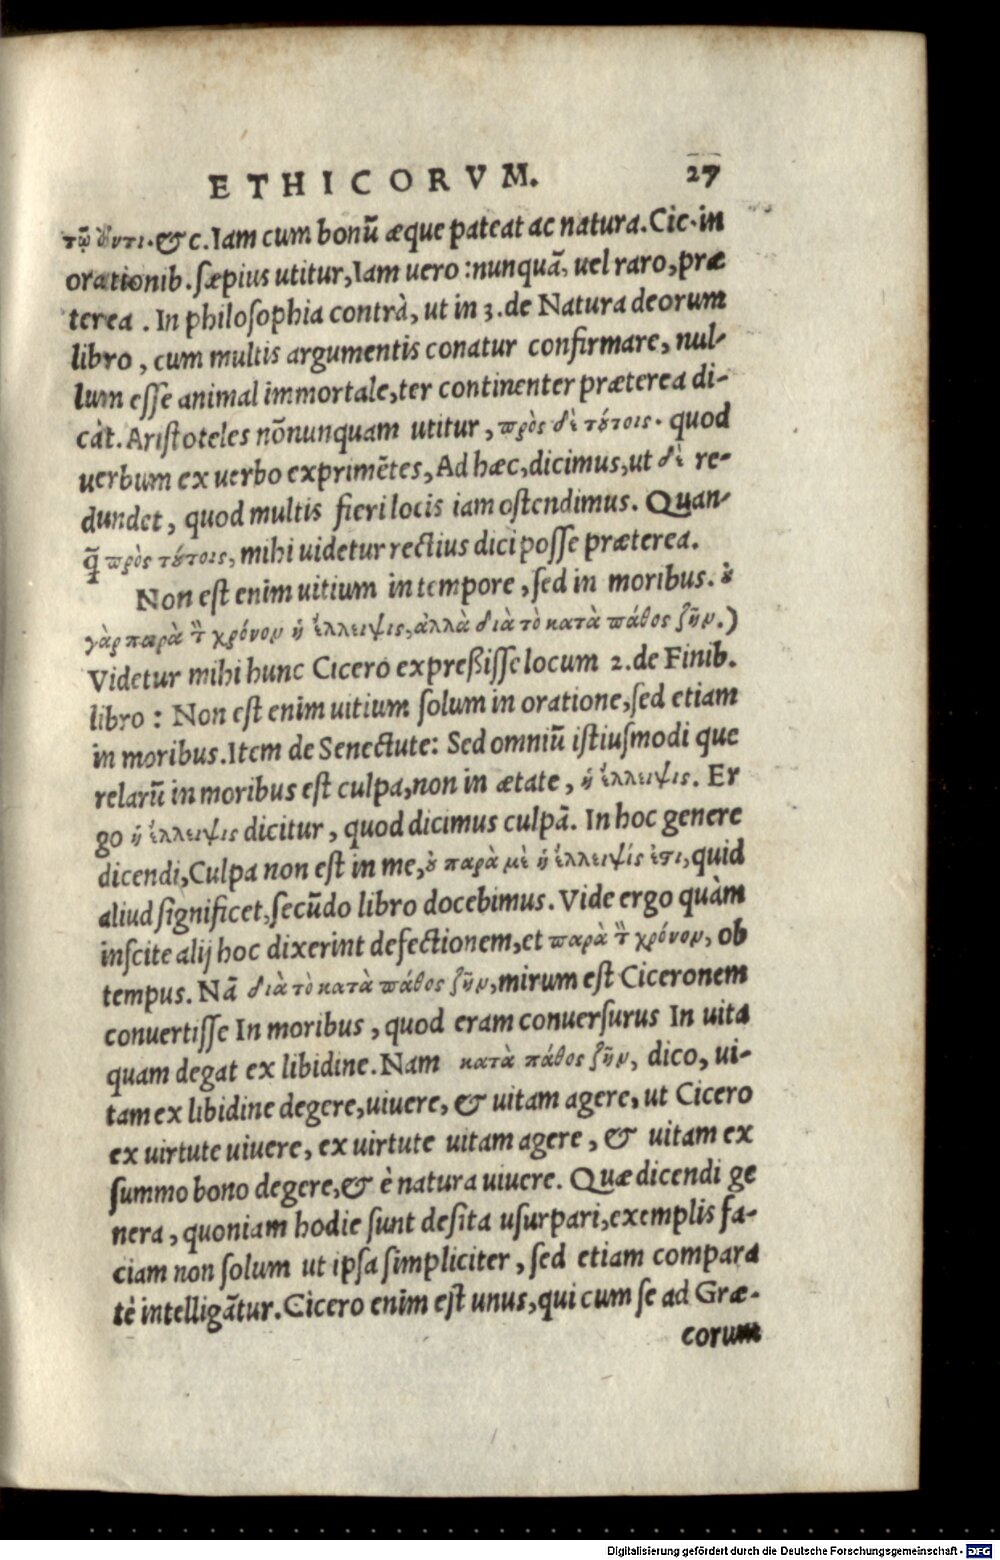 ETHICORVM. 27
τῷ ὄντι. &c. Iam cum bonũ æque pateat ac natura. Cic. in
orationib. sæpius utitur, Iam uero: nunquã, uel raro, præ
terea. In philosophia contrà, ut in 3. de Natura deorum
libro, cum multis argumentis conatur confirmare, nul-
lum esse animal immortale, ter continenter præterea di-
cat. Aristoteles nõnunquam utitur, πρὸς δὲ τούτοις. quod
uerbum ex uerbo exprimẽtes, Ad hæc, dicimus, ut δὲ re-
dundet, quod multis fieri locis iam ostendimus. Quan-
q̃ πρὸς τούτοις, mihi uidetur rectius dici posse præterea.
Non est enim uitium in tempore, sed in moribus. οὐ
γὰρ παρὰ τὸν χρόνον ἡ ἔλλειψις, ἀλλὰ διὰ τὸ κατὰ πάθος ζῆν.)
Videtur mihi hunc Cicero expreßisse locum 2. de Finib.
libro: Non est enim uitium solum in oratione, sed etiam
in moribus. Item de Senectute: Sed omniũ istiusmodi que
relarũ in moribus est culpa, non in ætate, ἡ ἔλλειψις. Er
go ἡ ἔλλειψις dicitur, quod dicimus culpã. In hoc genere
dicendi, Culpa non est in me, οὐ παρὰ μὲ ἡ ἔλλειψίς ἐστι, quid
aliud significet, secũdo libro docebimus. Vide ergo quàm
inscite alij hoc dixerint defectionem, et παρὰ τὸν χρόνον, ob
tempus. Nã διὰ τὸ κατὰ πάθος ζῆν, mirum est Ciceronem
conuertisse In moribus, quod eram conuersurus In uita
quam degat ex libidine. Nam κατὰ πάθος ζῆν, dico, ui-
tam ex libidine degere, uiuere, & uitam agere, ut Cicero
ex uirtute uiuere, ex uirtute uitam agere, & uitam ex
summo bono degere, & è natura uiuere. Quæ dicendi ge
nera, quoniam hodie sunt desita usurpari, exemplis fa-
ciam non solum ut ipsa simpliciter, sed etiam compara
tè intelligãtur. Cicero enim est unus, qui cum se ad Græ-
corum
Digitalisierung gefördert durch die Deutsche Forschungsgemeinschaft - DFG